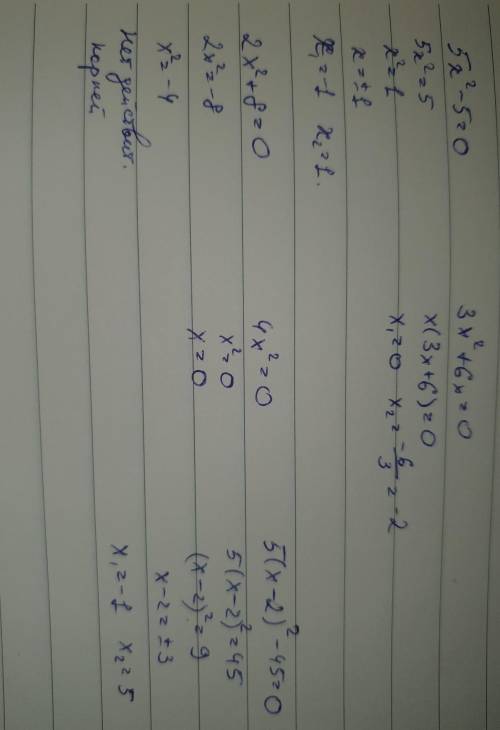 5x²-5=0
5x²=5
x²=1
x=±1
x₁=-1 x₂=1.
3x²+6x=0
x(3x+6)=0
x₁=0 x₂=-6/3=-2
2x²+8=0
2x²=-8
x²=-4
Нет действит.
корней
4x²=0
x²=0
x=0
5(x-2)²-45=0
5(x-2)²=45
(x-2)²=9
x-2=±3
x₁=-1 x₂=5